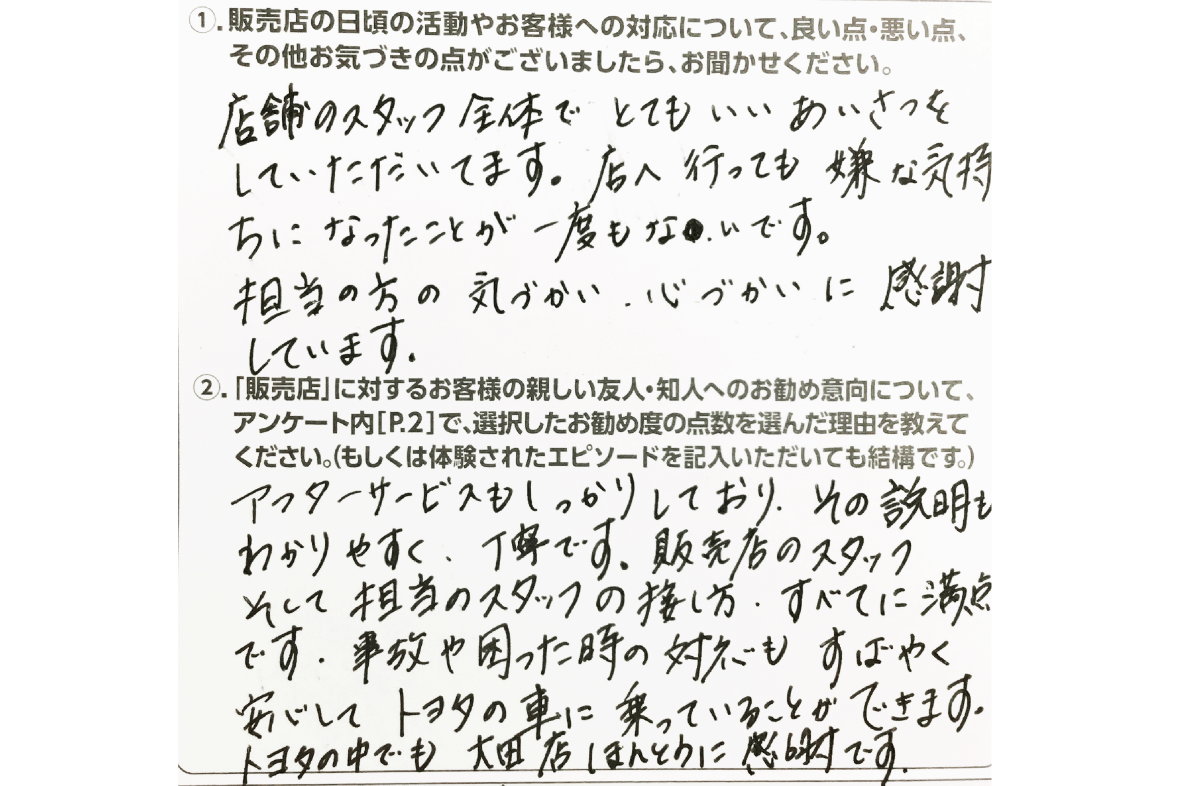 ①.販売店の日頃の活動やお客様への対応について、良い点・悪い点、
その他お気づきの点がございましたら、お聞かせください。
店舗のスタッフ全体で とても いい あいさつを
していただいてます。店へ 行っても 嫌な気持
ちに なったことが 一度もないです。
担当の方の 気づかい、心づかいに 感謝
しています。
②.「販売店」に対するお客様の親しい友人・知人へのお勧め意向について、
アンケート内[P.2]で、選択したお勧め度の点数を選んだ理由を教えて
ください。(もしくは体験されたエピソードを記入いただいても結構です。)
アフターサービスもしっかりしており、その説明も
わかりやすく、丁寧です。販売店のスタッフ
そして 担当のスタッフの接し方、すべてに満点
です。事故や困った時の対応も すばやく
安心して トヨタの車に 乗っていることができます。
トヨタの中でも 大田店 ほんとうに 感謝です。